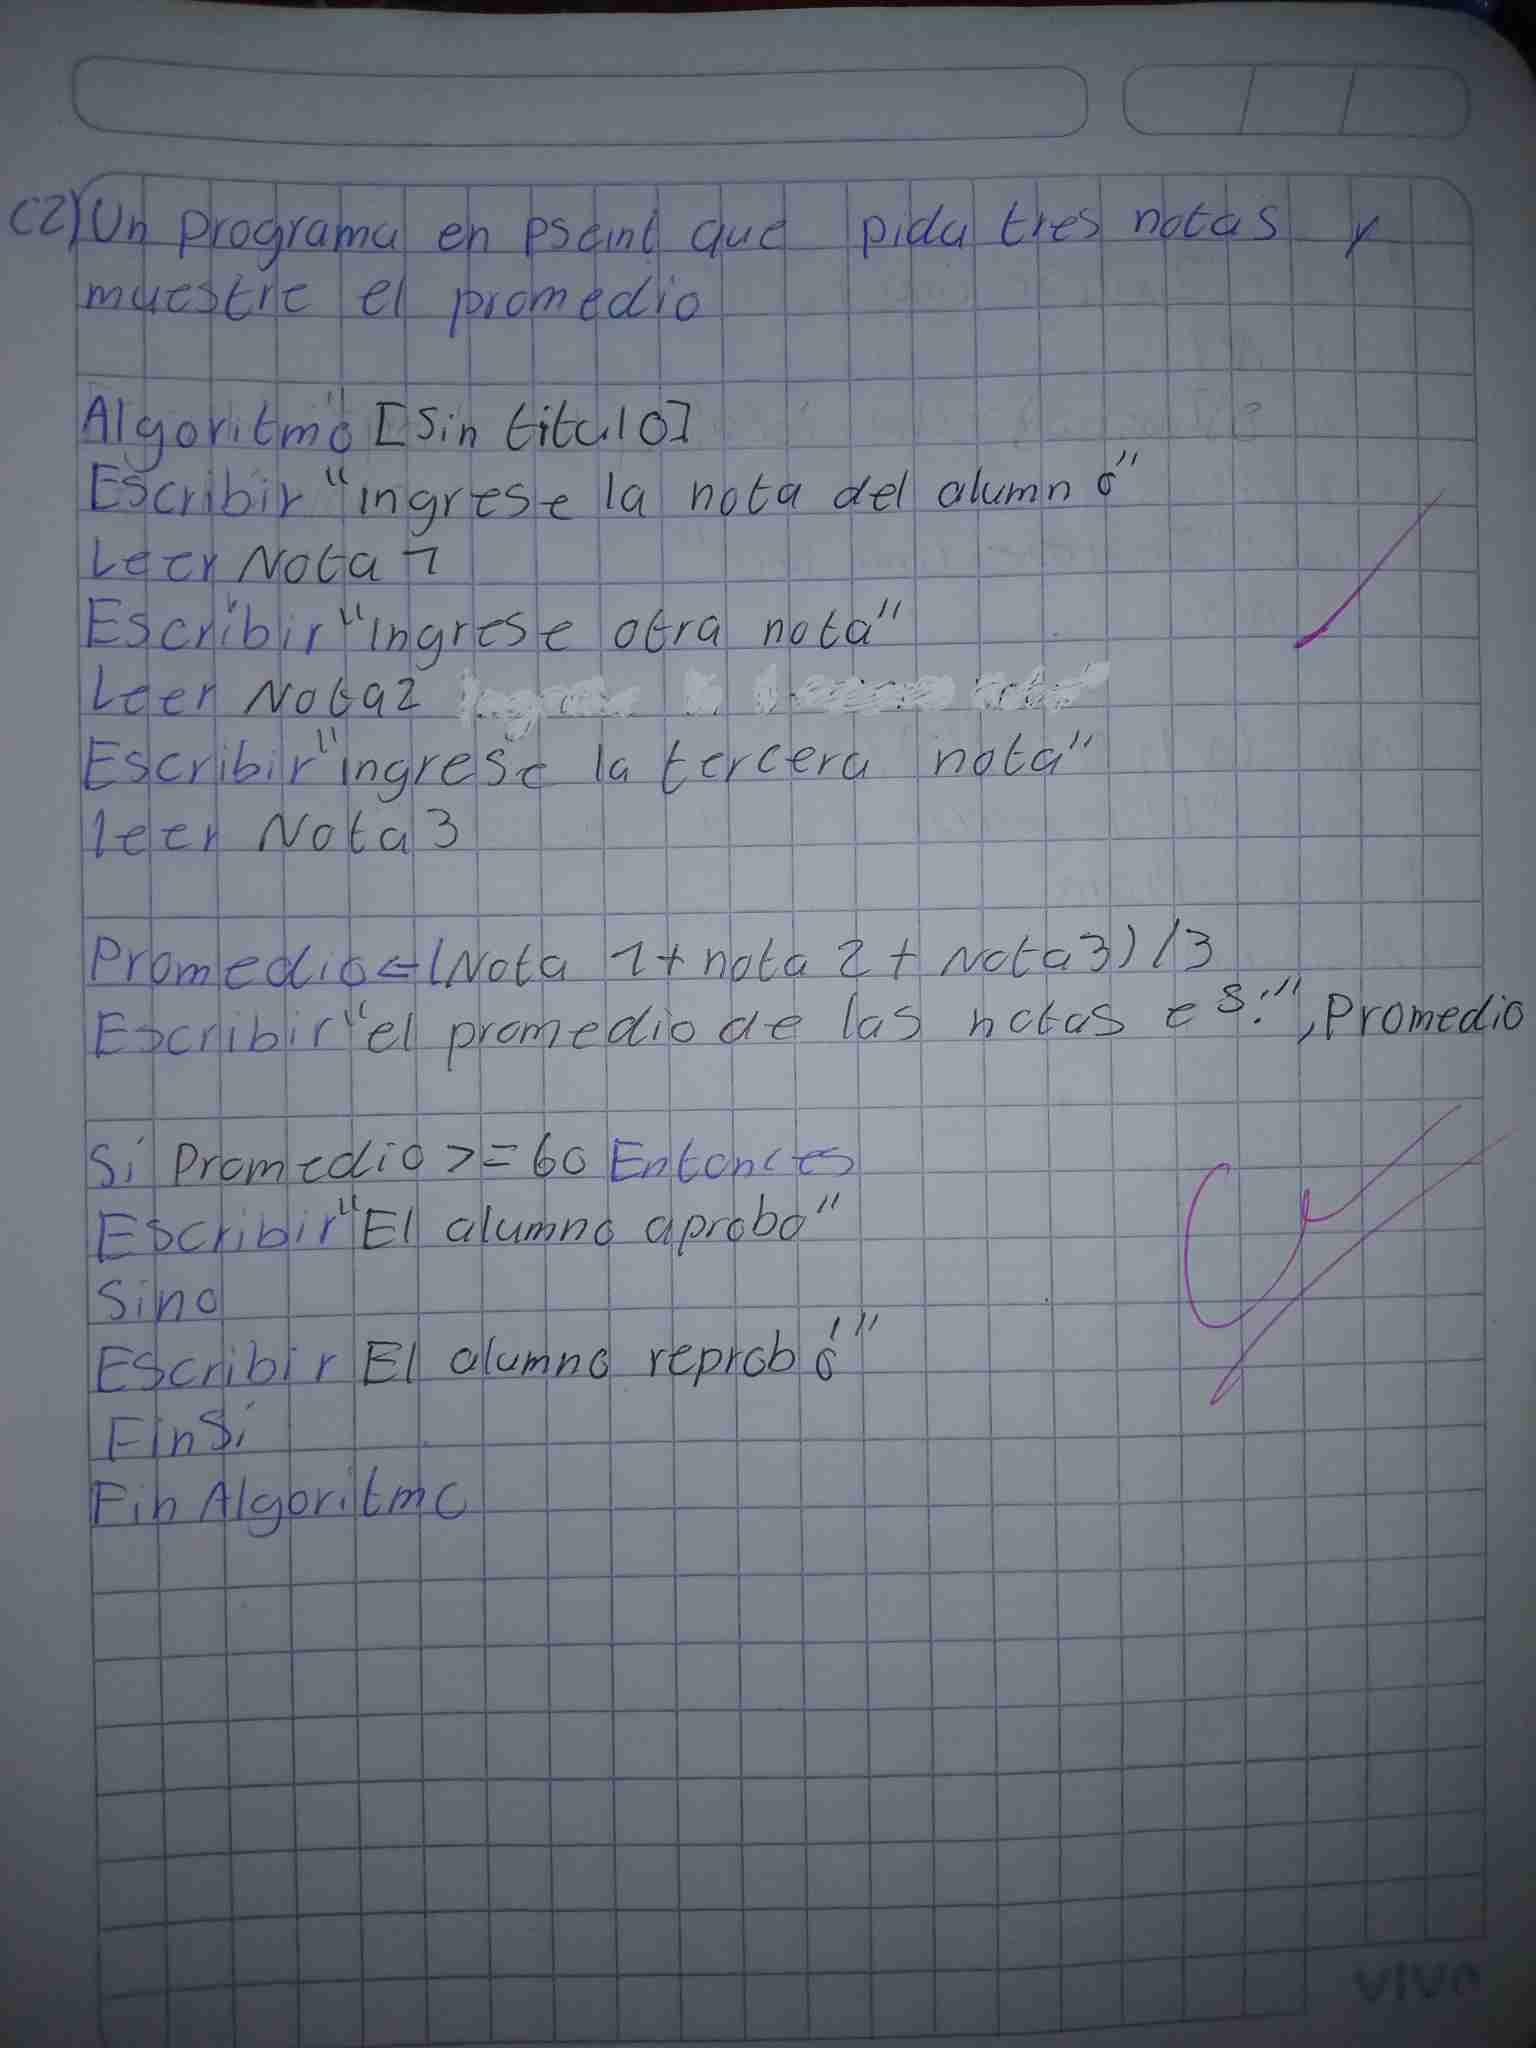 C2) Un programa en pseint que pida tres notas y
muestre el promedio
Algoritmo [Sin titulo]
Escribir "ingrese la nota del alumno"
Leer Nota 1
Escribir "Ingrese otra nota"
Leer Nota2
Escribir "ingrese la tercera nota"
leer Nota3
Promedio <- (Nota 1 + nota 2 + Nota3) / 3
Escribir "el promedio de las notas es:", Promedio
Si Promedio >= 60 Entonces
Escribir "El alumno aprobo"
Sino
Escribir El alumno reprobó"
FinSi
Fin Algoritmo
vivo